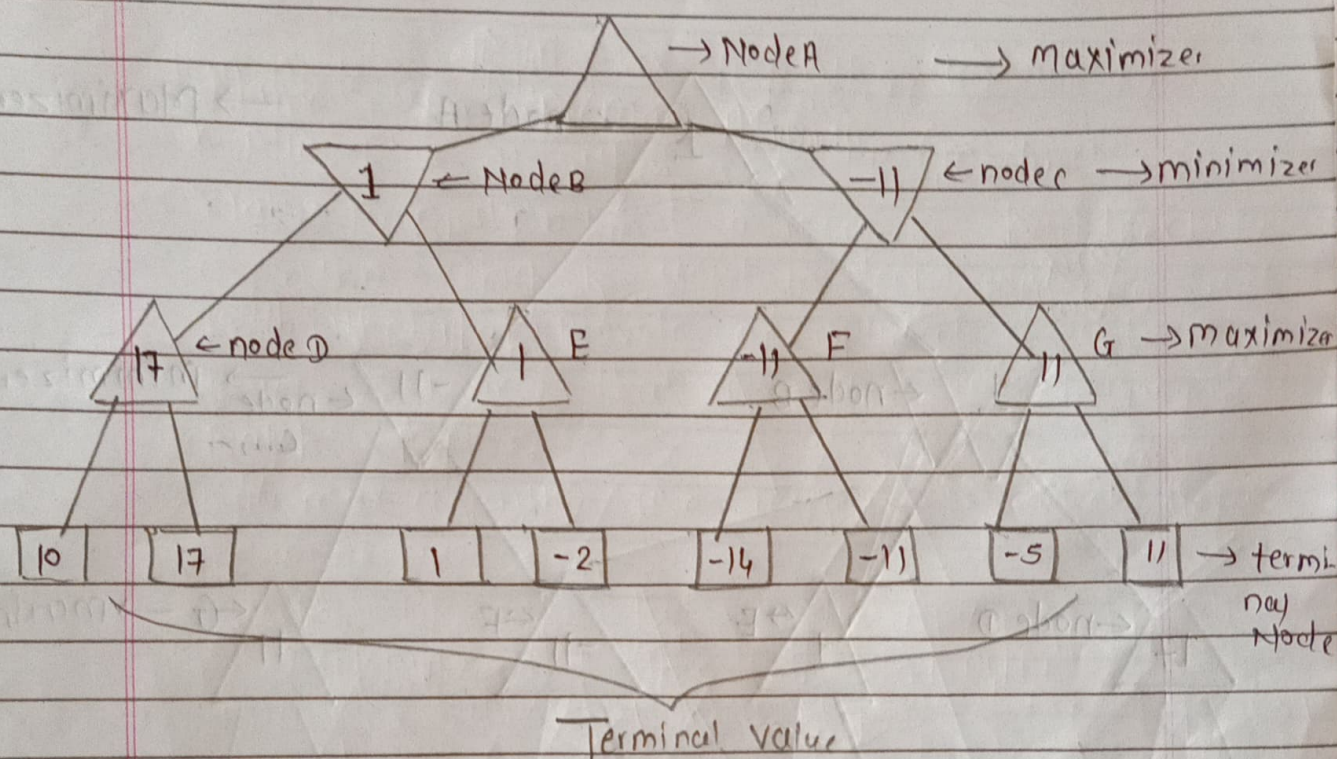 → NodeA → maximizer
1 ← NodeB -11 ← nodec → minimizer
17 ← node D 1 E -11 F 11 G → maximizer
10 17 1 -2 -14 -11 -5 11 → termi
nal
Node
Terminal value